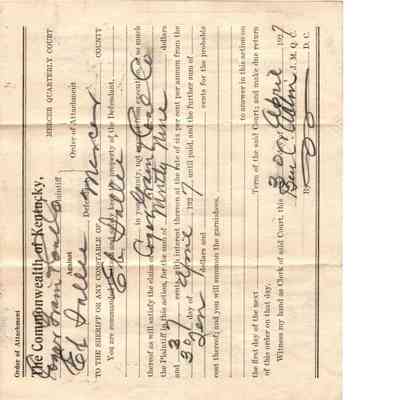 Order of Attachment
The Commonwealth of Kentucky,
MERCER QUARTERLY COURT
Plaintiff
Against
Order of Attachment
Ed Sallee Defendant
TO THE SHERIFF OR ANY CONSTABLE OF Mercer COUNTY
You are commanded to attach and safely keep the property of the Defendant,
Ed Sallee
in your county, not exempt from execution, or so much
thereof as will satisfy the claim of
the Plaintiff in this action, for the sum of Ninty Nine dollars
and 37 cents with interest thereon at the rate of six per cent per annum from the
30 day of April, 1927, until paid, and the further sum of
Ten dollars and cents for the probable
cost thereof; and you will summon the garnishees.
to answer in this action on
the first day of the next Term of the said Court; and make due return
of this order on that day.
Witness my hand as Clerk of said Court, this 30 of April 1927
Ben C. Allin J. M. Q. C.
By D. C.